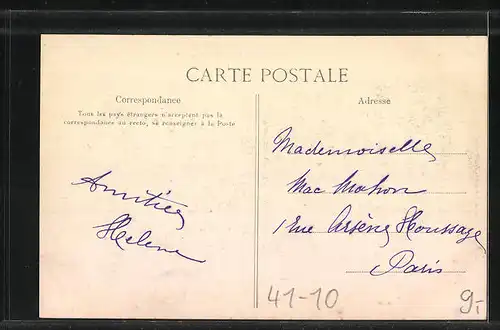 CARTE POSTALE
Correspondance
Tous les pays étrangers n'acceptent pas la
correspondance au recto, se renseigner à la Poste
Amitiés
Helene
Adresse
Mademoiselle
Mac Mahon
1 Rue Arsène Houssaye
Paris
41-10
9.-